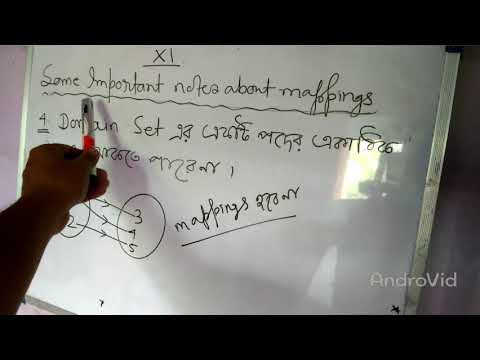 XI
Some Important notes about mappings
1 Domain Set এর একটি পদের একাধিক
থাকতে পারেনা।
3
2 4
5
mappings হবেনা
AndroVid